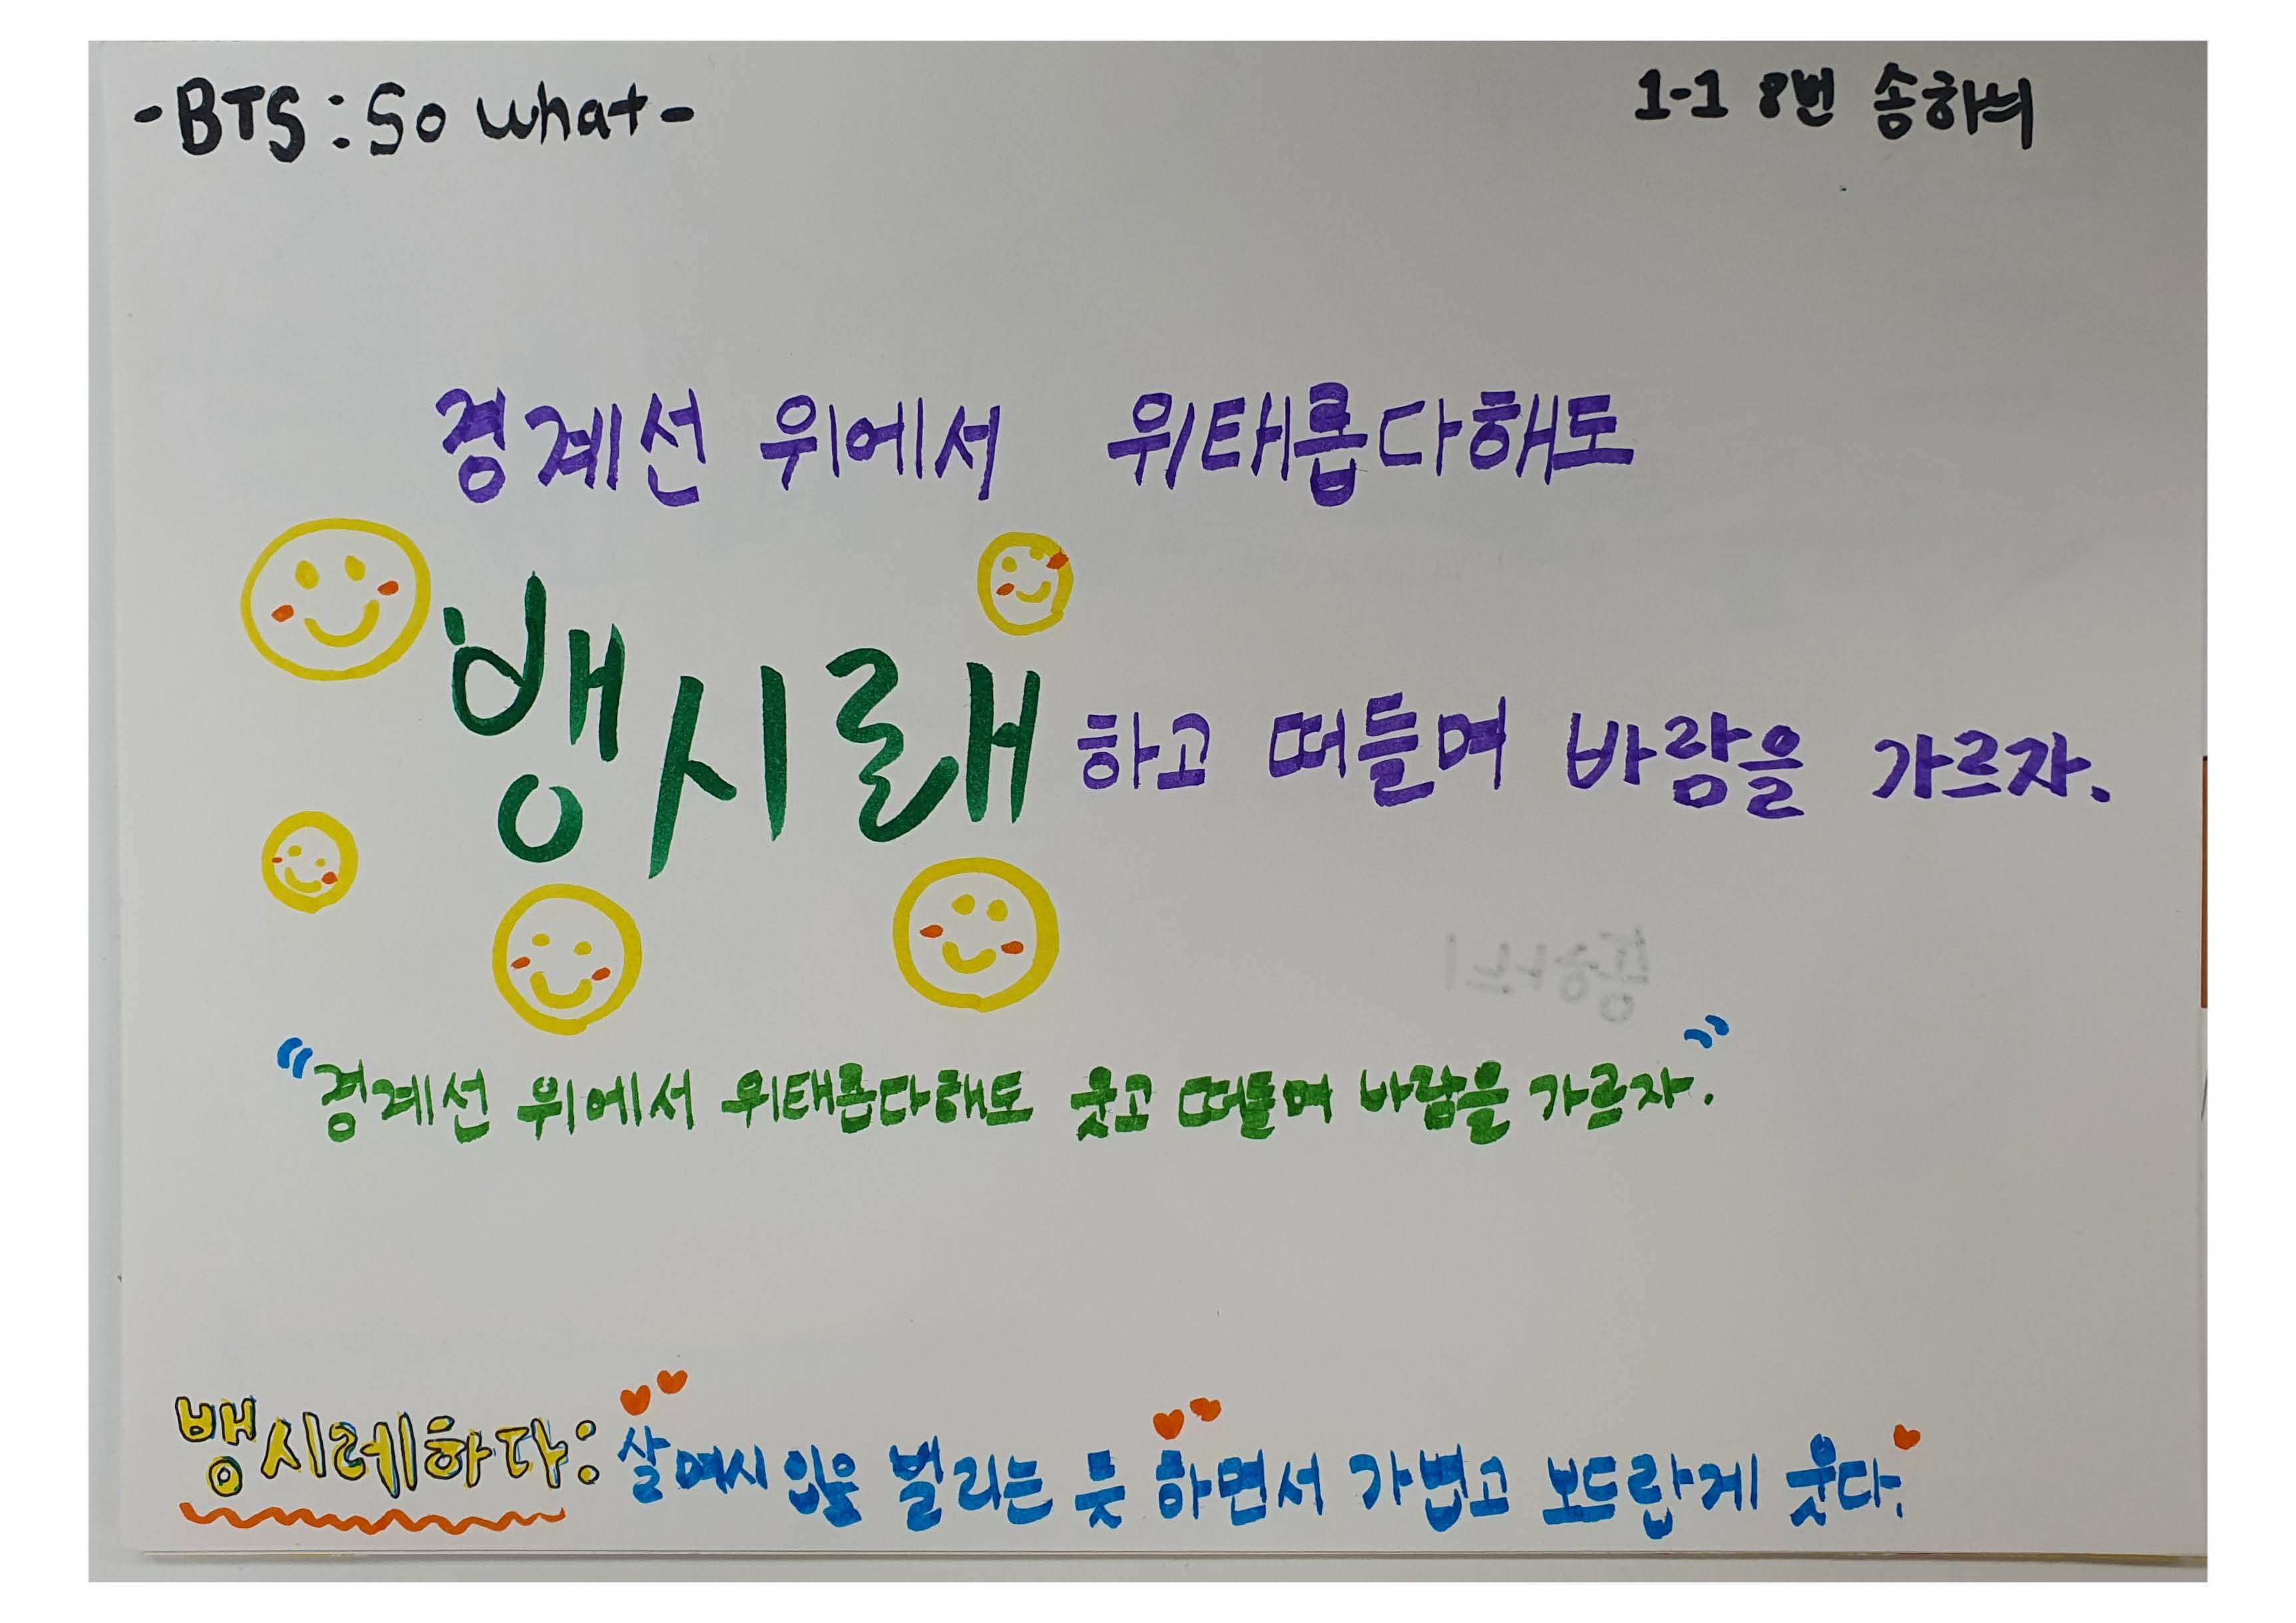 -BTS : So what-
1-1 8번 송하늬
경계선 위에서 위태롭다해도
뱅시래하고 떠들며 바람을 가르자.
송하늬
"경계선 위에서 위태롭다해도 웃고 떠들며 바람을 가르자."
뱅시레하다: 살며시 입을 벌리는 듯 하면서 가볍고 보드랍게 웃다.